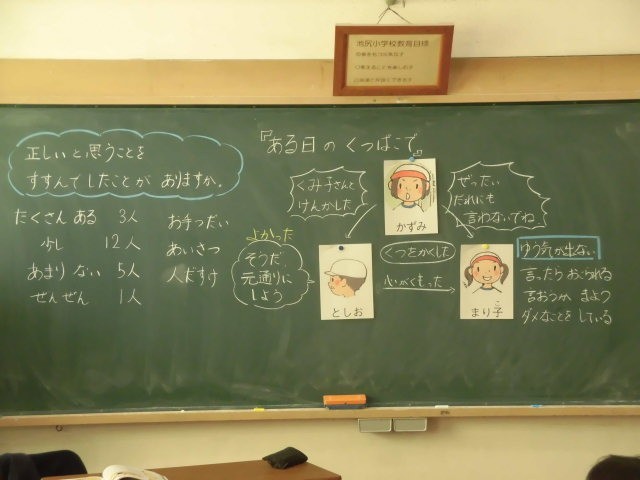 池尻小学校教育目標
『ある日のくつばこで』
正しいと思うことを
すすんでしたことがありますか。
たくさんある 3人
少し 12人
あまりない 5人
ぜんぜん 1人
お手つだい
あいさつ
人だすけ
よかった
そうだ
元通りに
しよう
くみ子さんと
けんかした
かずみ
ぜったい
だれにも
言わないでね
くつをかくした
心がくもった
としお
まり子
こ
ゆう気が出ない
言ったらおこられる
言おうか まよう
ダメなことをしている